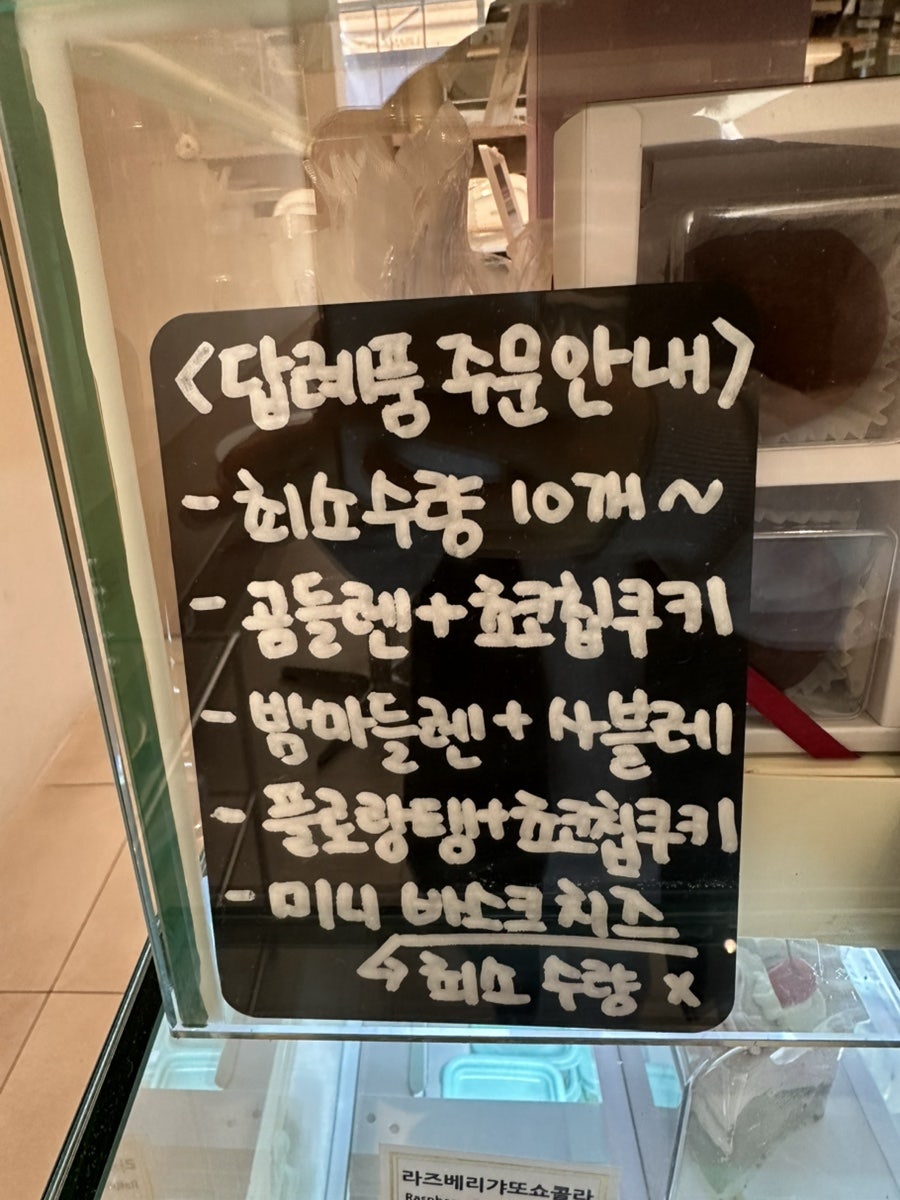 <답례품 주문안내>
- 최소수량 10개 ~
- 곰들렌+초코칩쿠키
- 밤마들렌+ 사블레
- 플로랑탱+초코칩쿠키
- 미니 바스크치즈
최소 수량 x
라즈베리갸또쇼콜라